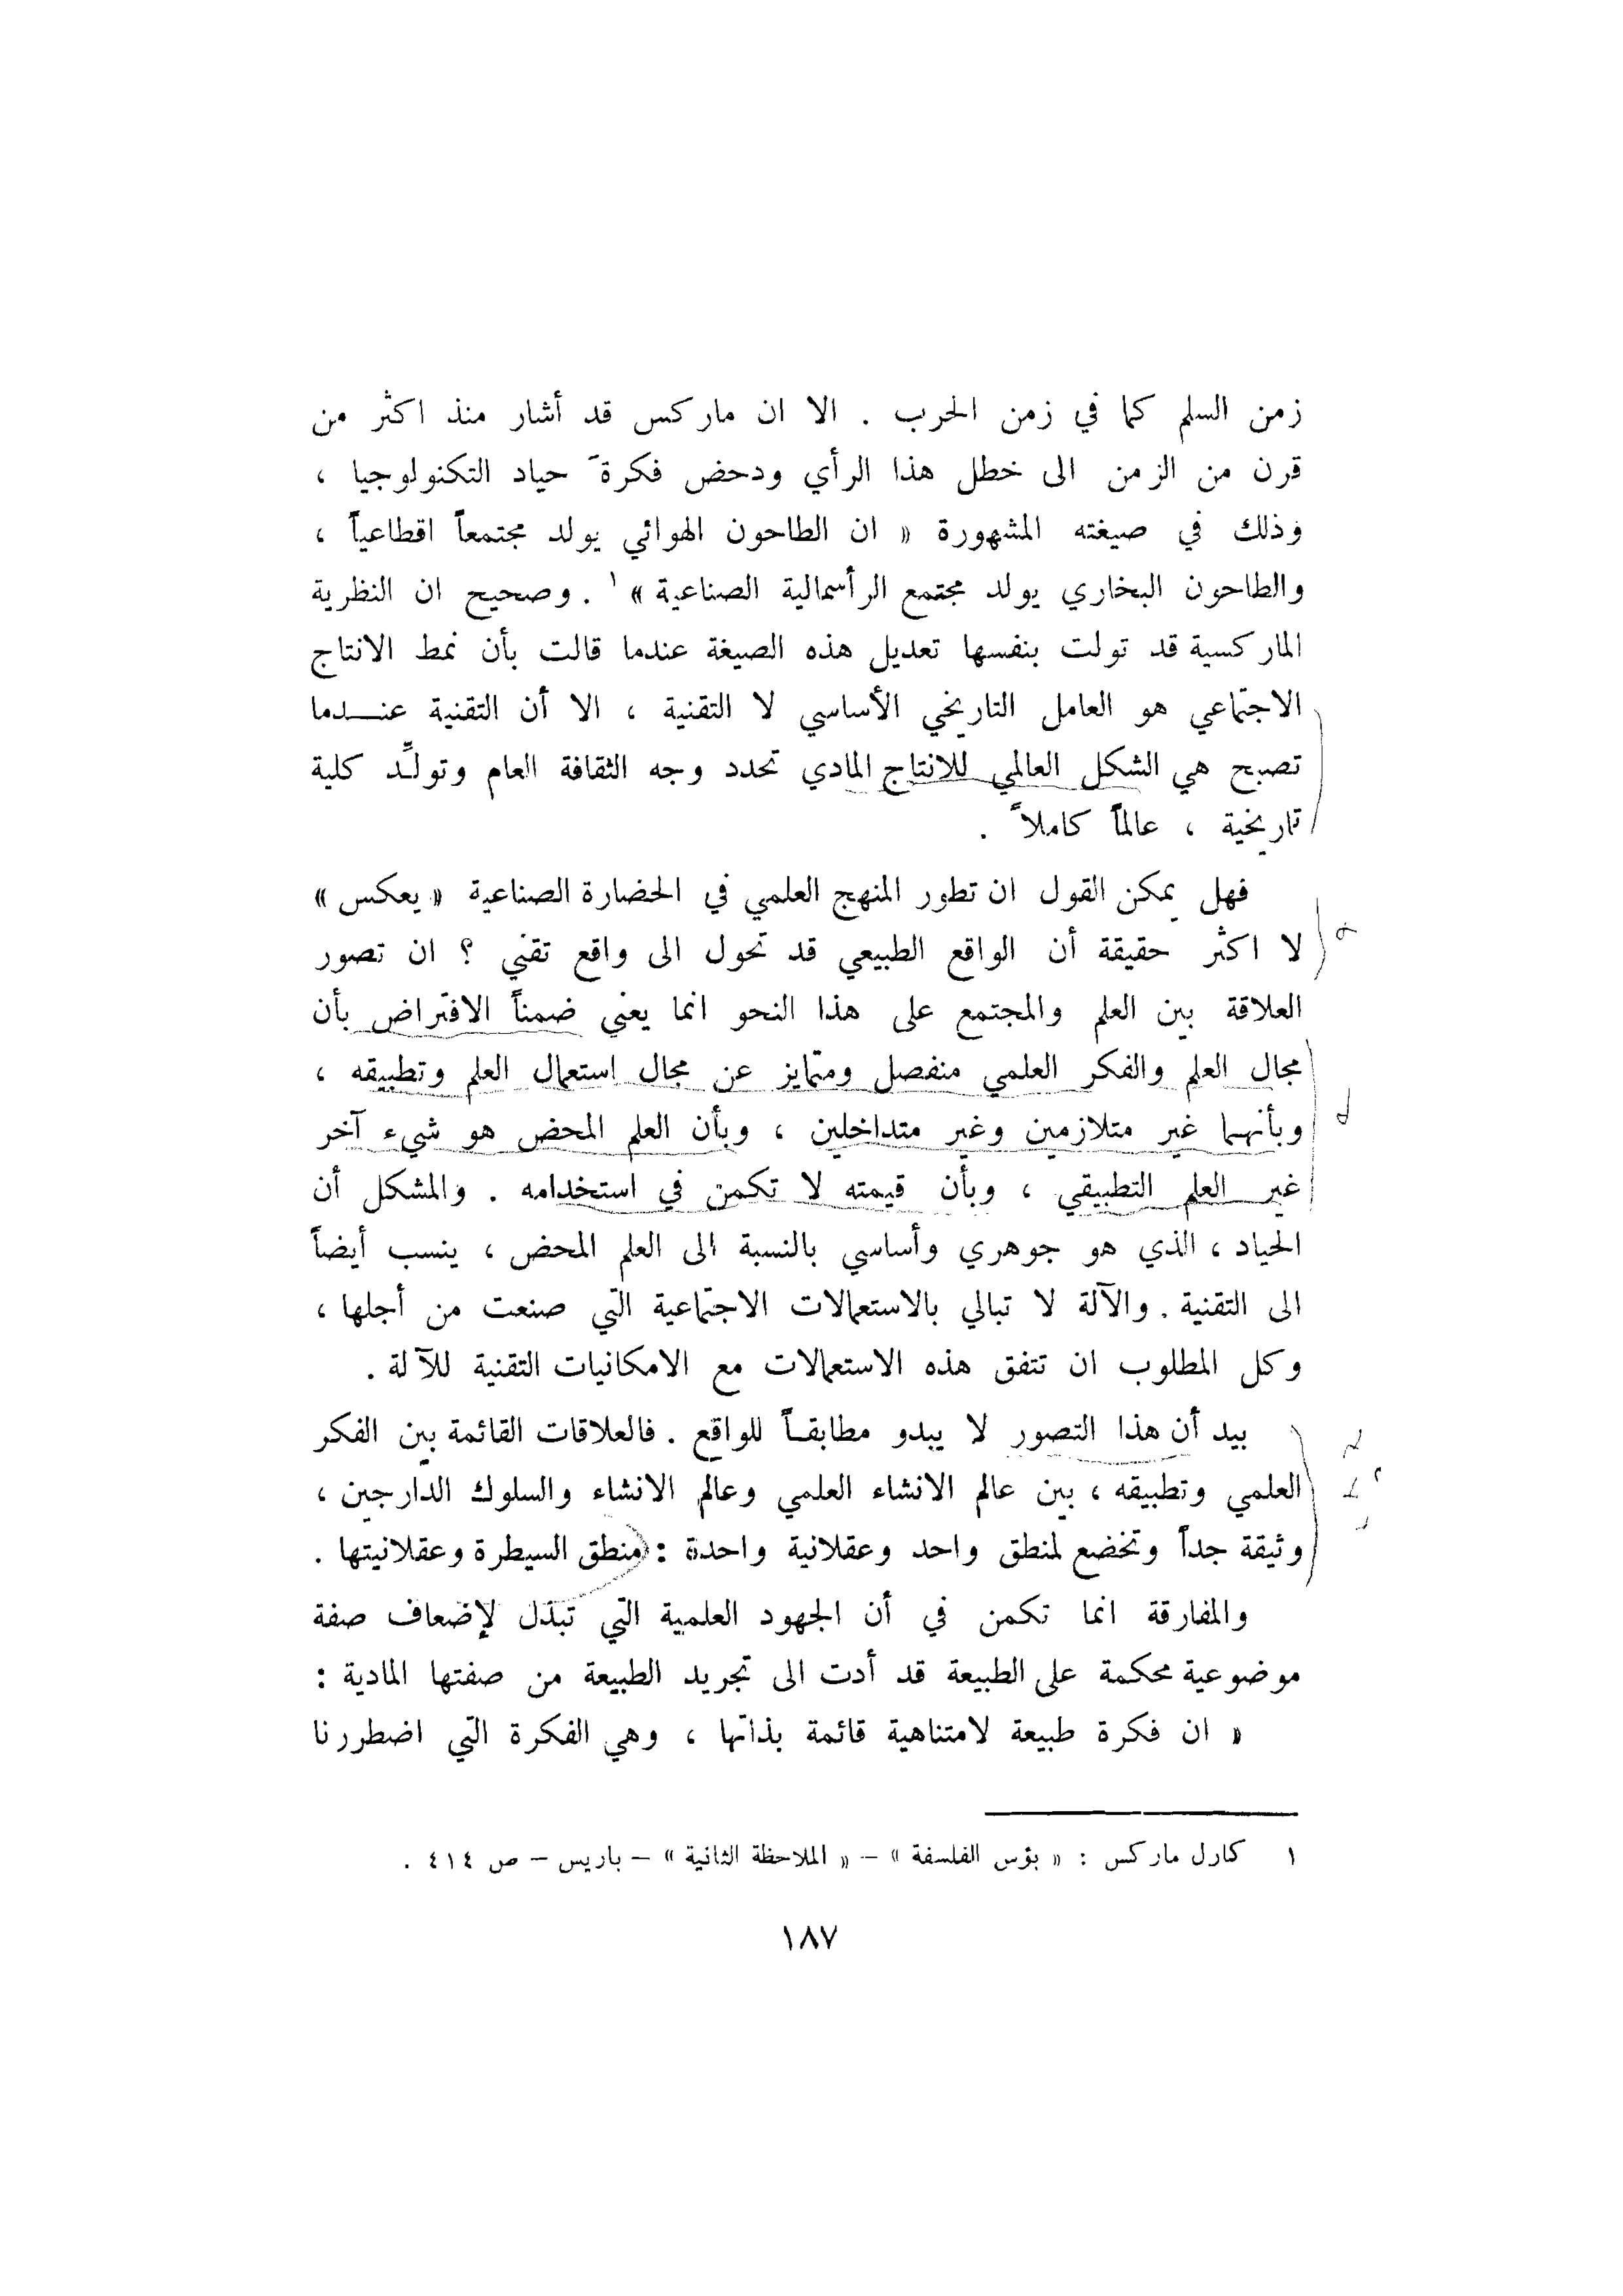 زمن السلم كما في زمن الحرب . الا ان ماركس قد أشار منذ اكثر من
قرن من الزمن الى خطل هذا الرأي ودحض فكرةَ حياد التكنولوجيا ،
وذلك في صيغته المشهورة « ان الطاحون الهوائي يولد مجتمعاً اقطاعياً ،
والطاحون البخاري يولد مجتمع الرأسمالية الصناعية » ١ . وصحيح ان النظرية
الماركسية قد تولت بنفسها تعديل هذه الصيغة عندما قالت بأن نمط الانتاج
الاجتماعي هو العامل التاريخي الأساسي لا التقنية ، الا أن التقنية عنـــدما
تصبح هي الشكل العالمي للانتاج المادي تحدد وجه الثقافة العام وتولِّد كلية
تاريخية ، عالماً كاملاً .
فهل يمكن القول ان تطور المنهج العلمي في الحضارة الصناعية « يعكس »
لا اكثر حقيقة أن الواقع الطبيعي قد تحول الى واقع تقني ؟ ان تصور
العلاقة بين العلم والمجتمع على هذا النحو انما يعني ضمناً الافتراض بأن
مجال العلم والفكر العلمي منفصل ومتمايز عن مجال استعمال العلم وتطبيقه ،
وبأنهما غير متلازمين وغير متداخلين ، وبأن العلم المحض هو شيء آخر
غير العلم التطبيقي ، وبأن قيمته لا تكمن في استخدامه . والمشكل أن
الحياد ، الذي هو جوهري وأساسي بالنسبة الى العلم المحض ، ينسب أيضاً
الى التقنية . والآلة لا تبالي بالاستعمالات الاجتماعية التي صنعت من أجلها ،
وكل المطلوب ان تتفق هذه الاستعمالات مع الامكانيات التقنية للآلة .
بيد أن هذا التصور لا يبدو مطابقـاً للواقع . فالعلاقات القائمة بين الفكر
العلمي وتطبيقه ، بين عالم الانشاء العلمي وعالم الانشاء والسلوك الدارجين ،
وثيقة جداً وتخضع لمنطق واحد وعقلانية واحدة : منطق السيطرة وعقلانيتها .
والمفارقة انما تكمن في أن الجهود العلمية التي تبذل لإضعاف صفة
موضوعية محكمة على الطبيعة قد أدت الى تجريد الطبيعة من صفتها المادية :
« ان فكرة طبيعة لامتناهية قائمة بذاتها ، وهي الفكرة التي اضطررنا
١ كارل ماركس : « بؤس الفلسفة » – « الملاحظة الثانية » – باريس – ص ٤١٤ .
١٨٧